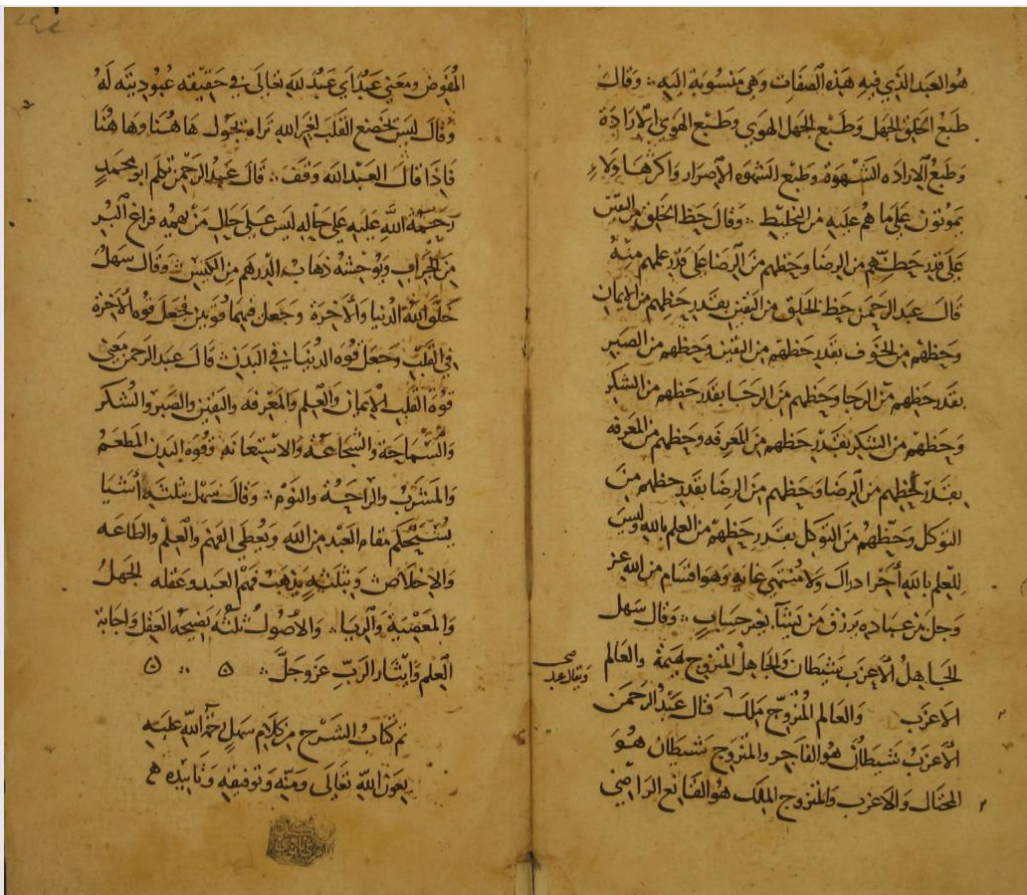 هو العبد الذي فيه هذه الصفات وهي منسوبة اليه ؞ وقال
طبع الخلق الجهل وطبع الجهل الهوى وطبع الهوى الارادة
وطبع الاراده الشهوة وطبع الشهوه الاصرار واكرهها ولا
يموتون على ما هم عليه من التخليط ؞ وقال حظ الخلق من اليقين
على قدر حظهم من الرضا وحظهم من الرضا على قدر علمهم منه
قال عبد الرحمن حظ الخلق من اليقين بقدر حظهم من الايمان
وحظهم من الخوف بقدر حظهم من اليقين وحظهم من الصبر
بقدر حظهم من الرجا وحظهم من الرجا بقدر حظهم من الشكر
وحظهم من الشكر بقدر حظهم من المعرفه وحظهم من المعرفه
بقدر حظهم من الرضا وحظهم من الرضا بقدر حظهم من
التوكل وحظهم من التوكل بقدر حظهم من العلم بالله وليس
للعلم بالله آخر ادراك ولا منتهى غايه وهو اقسام من الله عز
وجل بين عباده يرزق من يشآ بغير حساب ؞ وقال سهل
الجاهل الاعزب شيطان والجاهل المتزوج بهيمة والعالم
الاعزب والعالم المتزوج ملك قال عبد الرحمن
الاعزب شيطان هو الفاجر والمتزوج شيطان هو
المحتال والاعزب والمتزوج الملك هو القانع الراضي
المفوض ومعنى عبد اي عبد لله تعالى في حقيقه عبوديته له
وقال ليس يخضع القلب لغير الله تراه يجول هاهنا وهاهنا
فاذا قال العبد الله وقف ؞ قال عبد الرحمن تكلم ابو محمد
رحمة الله عليه على حاله ليس على حال من يهمه فراغ البر
من الجراب ويوحشه ذهاب الدرهم من الكيس ؞ وقال سهل
خلق الله الدنيا والاخرة وجعل فيهما قوتين فجعل قوه الاخرة
في القلب وجعل قوه الدنيا في البدن ؞ قال عبد الرحمن معنى
قوة القلب الايمان والعلم والمعرفه واليقين والصبر والشكر
والسماحة والشجاعة والاستعانه وقوه البدن المطعم
والمشرب والراحة والنوم ؞ وقال سهل ثلثة أشيا
يستحكم مقام العبد من الله ويعطى الفهم والعلم والطاعه
والاخلاص وبثلثه يذهب فهم العبد وعقله الجهل
والمعصية والريا ؞ والأصول ثلثه نصيحه العقل واجابة
العلم وايثار الرب عز وجل ؞
تم كتاب الشرح من كلام سهل رحمة الله عليه
بعون الله تعالى ومنه وتوفيقه وتاييده